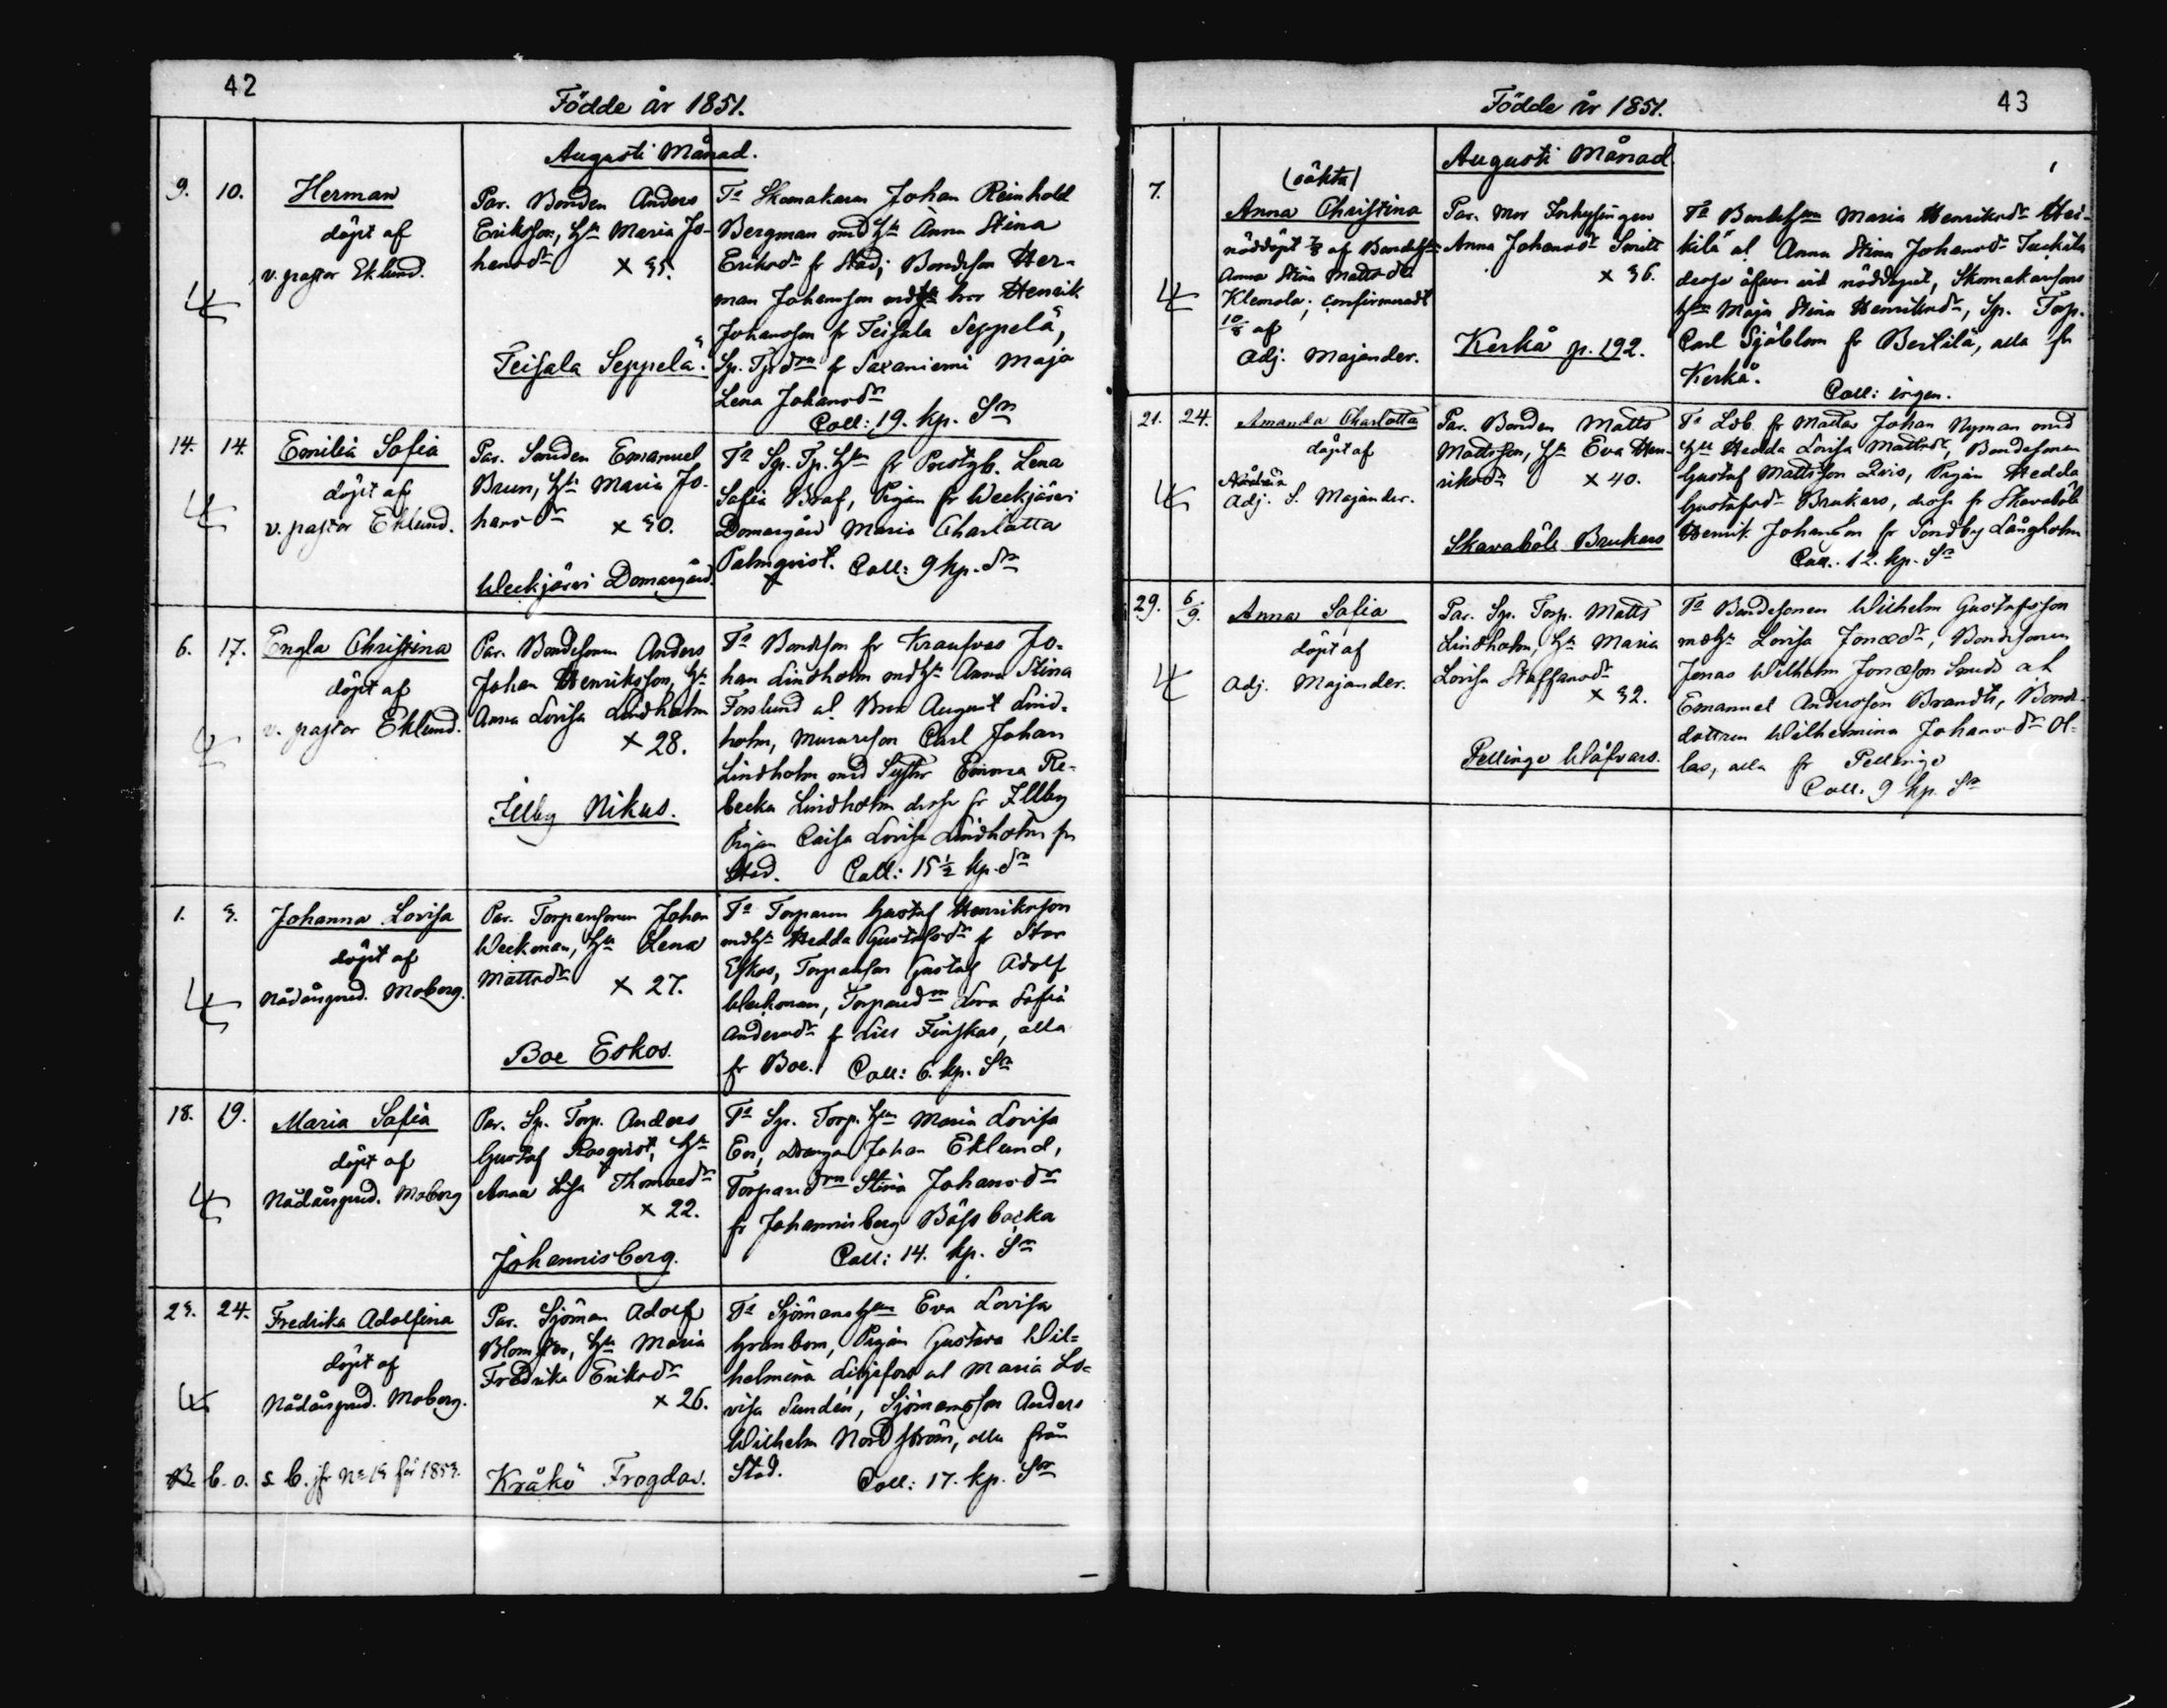 42
Födde år 1851.
Augusti Månad.
9. 10. Herman
döpt af
v. pastor Eklund.
Par. Bonden Anders
Eriksson, H. Maria Jo-
hansdr
x 35.
Teisala Seppelä.
Ta Skomakaren Johan Reinhold
Bergman med H. Anna Stina
Eriksdr fr Stad; Bondeson Her-
man Johansson med bror Henrik
Johansson fr Teisala Seppelä,
Sp. fr Saxaniemi Maja
Lena Johansdr
Coll: 19. kp. Sr
14. 14. Emilia Sofia
döpt af
v. pastor Eklund.
Par. Smeden Emanuel
Brun, H. Maria Jo-
hansdr
x 30.
Weckjärvi Domargård
Ta Sp. Tp. fr Prostgb. Lena
Sofia Graf, Pigan fr Weckjärvi
Domargård Maria Charlotta
Palmqvist. Coll: 9 kp. Sr
6. 17. Engla Christina
döpt af
v. pastor Eklund.
Par. Bondesonen Anders
Johan Henriksson, H.
Anna Lovisa Lindholm
x 28.
Illby Nikus.
Ta Bondeson fr Kraufvas Jo-
han Lindholm med H. Anna Stina
Forslund al. Bror August Lind-
holm, Murareson Carl Johan
Lindholm med Syster Emma Re-
becka Lindholm desse fr Illby
Pigan Caisa Lovisa Lindholm fr
Stad. Coll: 15 1/2 kp. Sr
1. 3. Johanna Lovisa
döpt af
Nådårspred. Moberg.
Par. Torparsonen Johan
Weckman, H. Lena
Mattsdr
x 27.
Boe Eskos.
Ta Torparen Gustaf Henriksson
med H. Hedda Gustafsdr fr Stor
Eskos, Torparson Gustaf Adolf
Weckman, Torpared Lena Sofia
Andersdr fr Lill Finskas, alla
fr Boe. Coll: 6. kp. Sr
18. 19. Maria Sofia
döpt af
Nådårspred. Moberg
Par. Sp. Torp. Anders
Gustaf Rosqvist, H.
Anna Lisa Thomasdr
x 22.
Johannisberg.
Ta Sp. Torp. Maria Lovisa
Ek, Drängen Johan Eklund,
Torpared Stina Johansdr
fr Johannisberg Bässbacka
Coll: 14. kp. Sr
23. 24. Fredrika Adolfina
döpt af
Nådårspred. Moberg.
b. o. s. b. jfr No 13 för 1853.
Par. Sjöman Adolf
Blomster, H. Maria
Fredrika Eriksdr
x 26.
Kråkö Frogdas.
Ta Sjömans Eva Lovisa
Granbom, Pigan Gustava Wil-
helmina Liljefors al Maria Lo-
visa Sundén, Sjömansson Anders
Wilhelm Nordström, alla från
Stad. Coll: 17. kp. Sr
Födde år 1851. 43
Augusti Månad.
7. (oäkta)
Anna Christina
nöddöpt 7/8 af
Anna Stina Mattsdr
Klemola; confirmeradt
10/8 af
Adj. Majander.
Par. Mor Inhysingen
Anna Johansdr Smitt
x 36.
Kerkå p. 192.
Ta Maria Henriksdr Hei-
kilä al Anna Stina Johansdr
desse äfven vid nöddopet, Skomakarsons
Maja Stina Henriksdr, Sp. Torp.
Carl Sjöblom fr Bertilä, alla fr
Kerkå. Coll: ingen.
21. 24. Amanda Charlotta
döpt af
Adj. S. Majander.
Par. Bonden Matts
Mattsson, H. Eva Hen-
riksdr x 40.
Skavaböle Brukars
Ta Ldb. fr Mattas Johan Nyman med
H. Hedda Lovisa Mattsdr, Bondesonen
Gustaf Mattsson Qvis, Pigan Hedda
Gustafsdr Brukars, desse fr Skavaböle
Henrik Johansson fr Tondby Långholm
Coll. 12. kp. Sr
29. 6/9. Anna Sofia
döpt af
Adj. Majander.
Par. Sp. Torp. Matts
Lindholm, H. Maria
Lovisa Staffansdr
x 32.
Pellinge Wäfvars.
Ta Bondesonen Wilhelm Gustafsson
med H. Lovisa Jonasdr, Bondesonen
Jonas Wilhelm Jonasson Smeds al
Emanuel Andersson Brandts, Bonde-
dottren Wilhelmina Johansdr Ol-
las, alla fr Pellinge
Coll. 9 kp. Sr